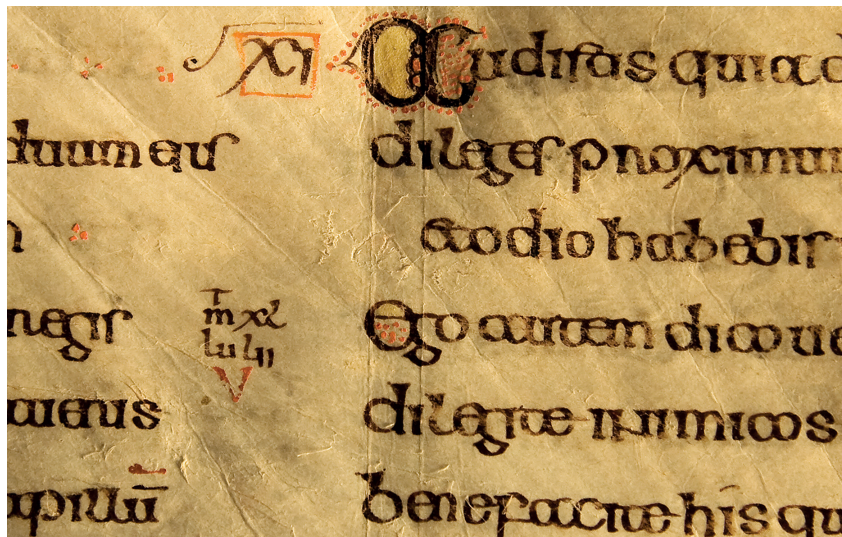 duum eius
regis
aueris
apillū
XI
T
m xl
lu lii
V
Audistis quia d
dileges proximu
et odio habebis
Ego autem dico
dilegite inimicos
benefacite his qu